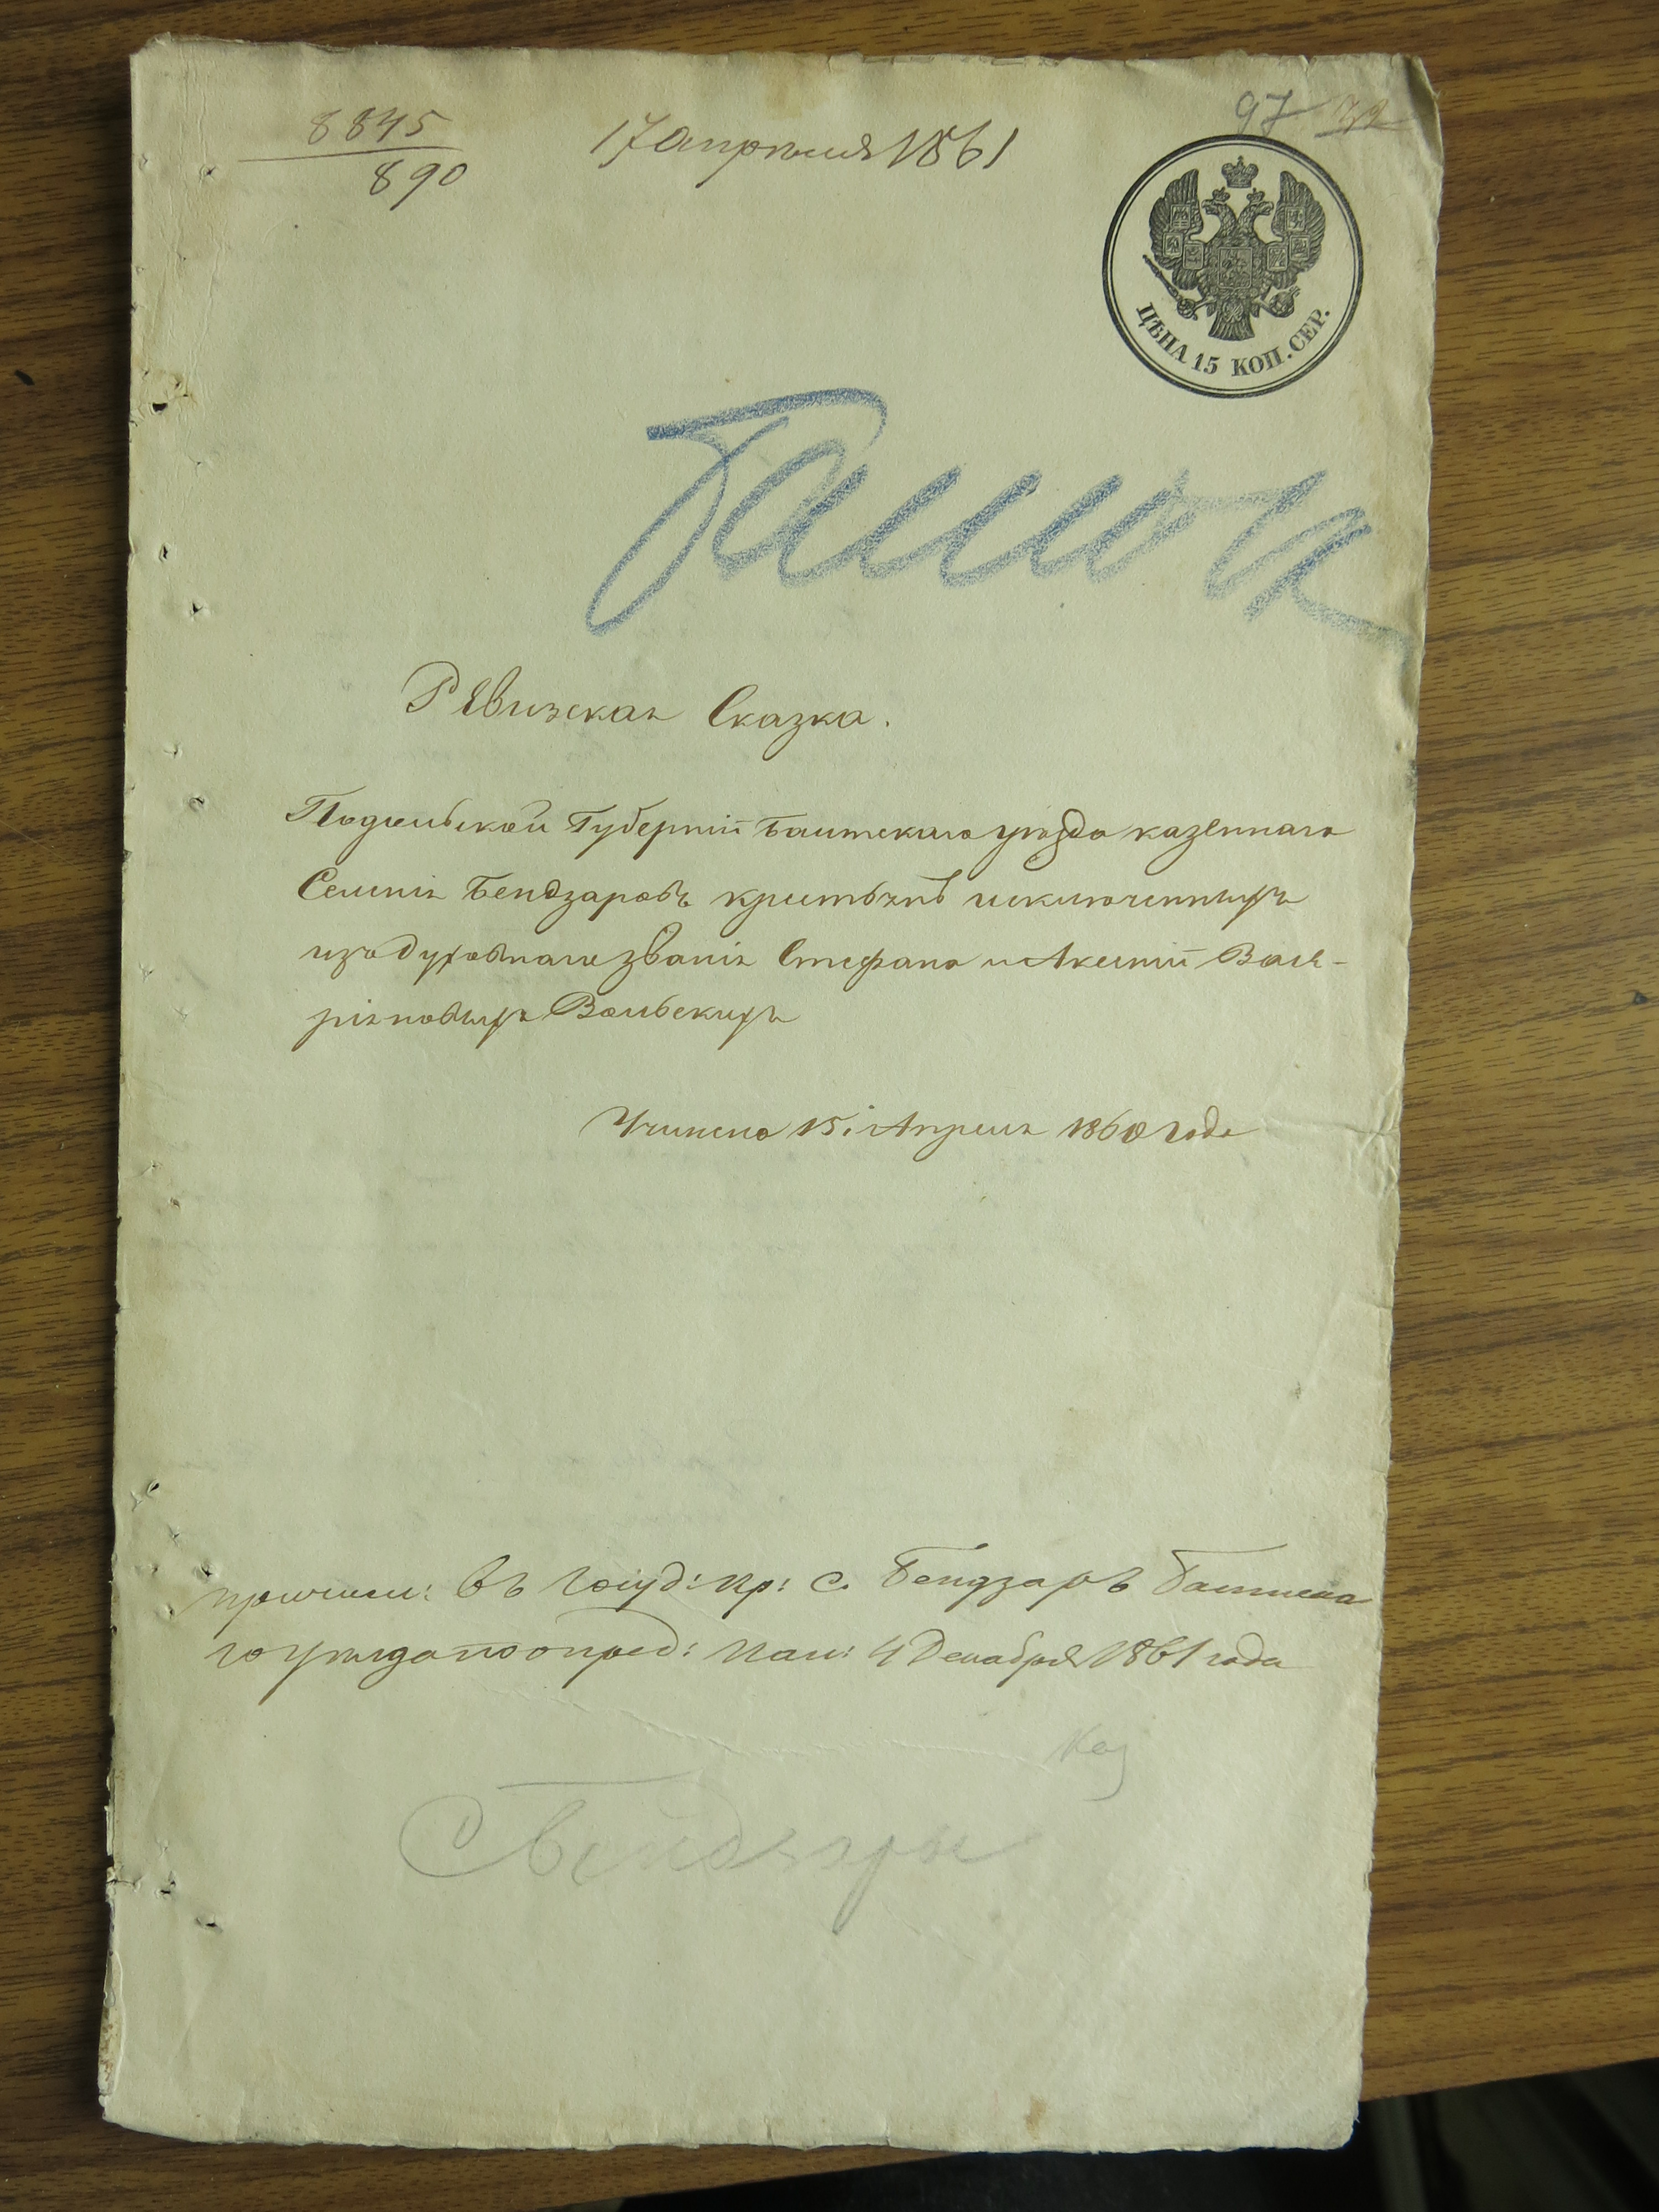 8845
890
17 апрѣля 1861
97
ЦѢНА 15 КОП. СЕР.
Ревизская Сказка.
Подольской Губерніи Балтскаго уѣзда казеннаго
Селенія Бендзаровъ исключенныхъ
изъ духовнаго званія Стефана и Вале-
ріановыхъ Вольскихъ
Учинена 15. Апреля 1860 года
причисл: въ госуд: кр: с. Бендзаръ Балтска
го уѣзда по опред: пал: 4 Декабря 1861 года
Каз
С Бендзары